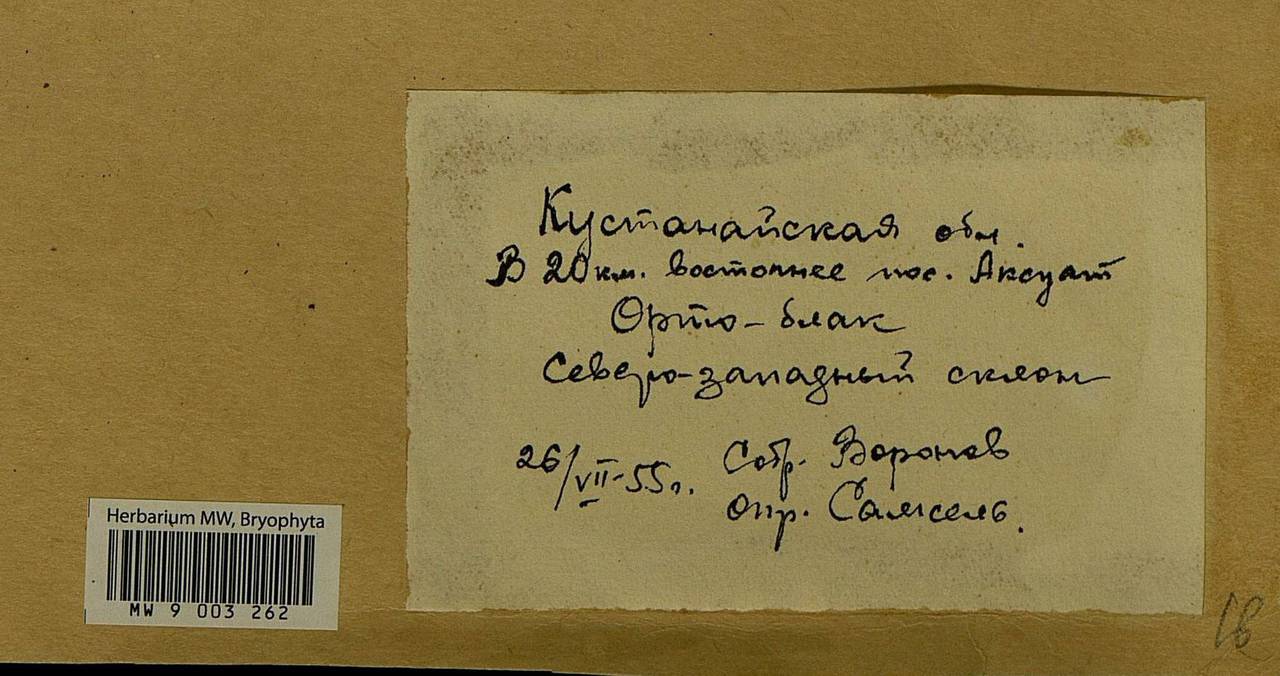 Кустанайская обл.
В 20 км. восточнее пос. Аксуат
Орто-блак
Северо-западный склон
26/VII-55г.
Собр. Воронов
Опр. Самсель.
Herbarium MW, Bryophyta
MW 9 003 262